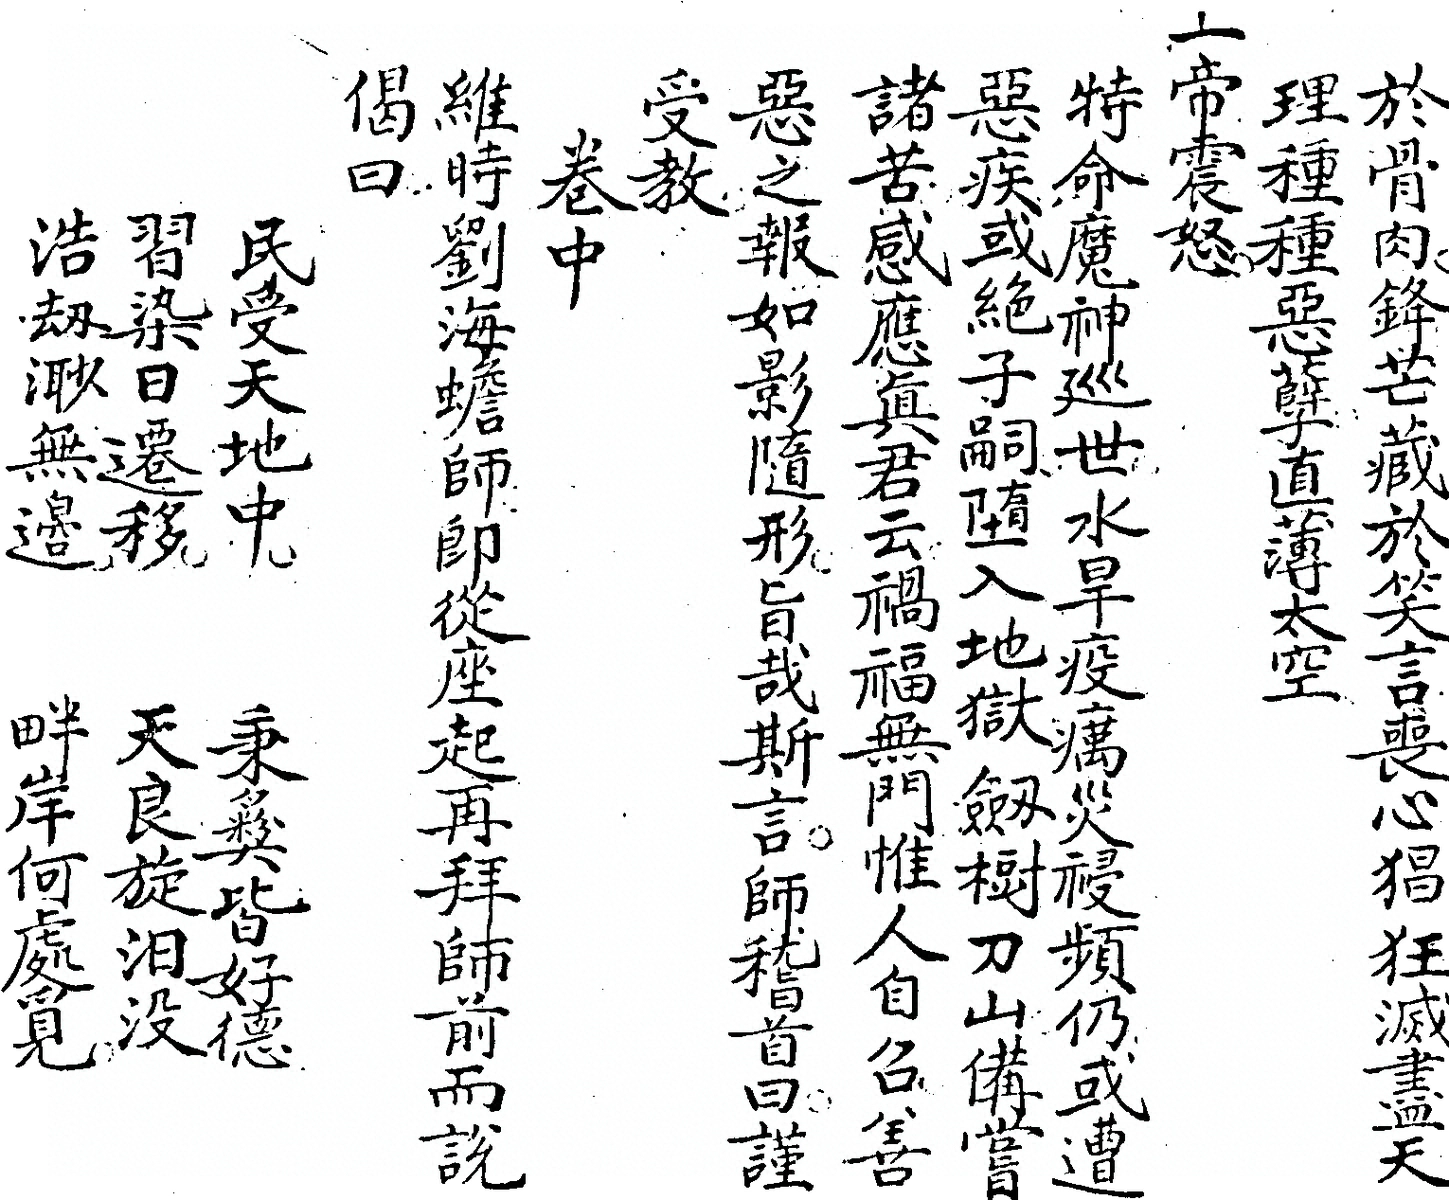 於骨肉鋒芒藏於笑言喪心猖狂滅盡天
理種種惡孽直薄太空
上帝震怒
特命魔神巡世水旱疫癘災祲頻仍或遭
惡疾或絶子嗣墮入地獄劔樹刀山備嘗
諸苦感應眞君云禍福無門惟人自召善
惡之報如影隨形旨哉斯言師稽首曰謹
受教
卷中
維時劉海蟾師卽從座起再拜師前而說
偈曰
民受天地中 秉彝皆好德
習染日遷移 天良旋汨没
浩刼渺無邊 畔岸何處覓